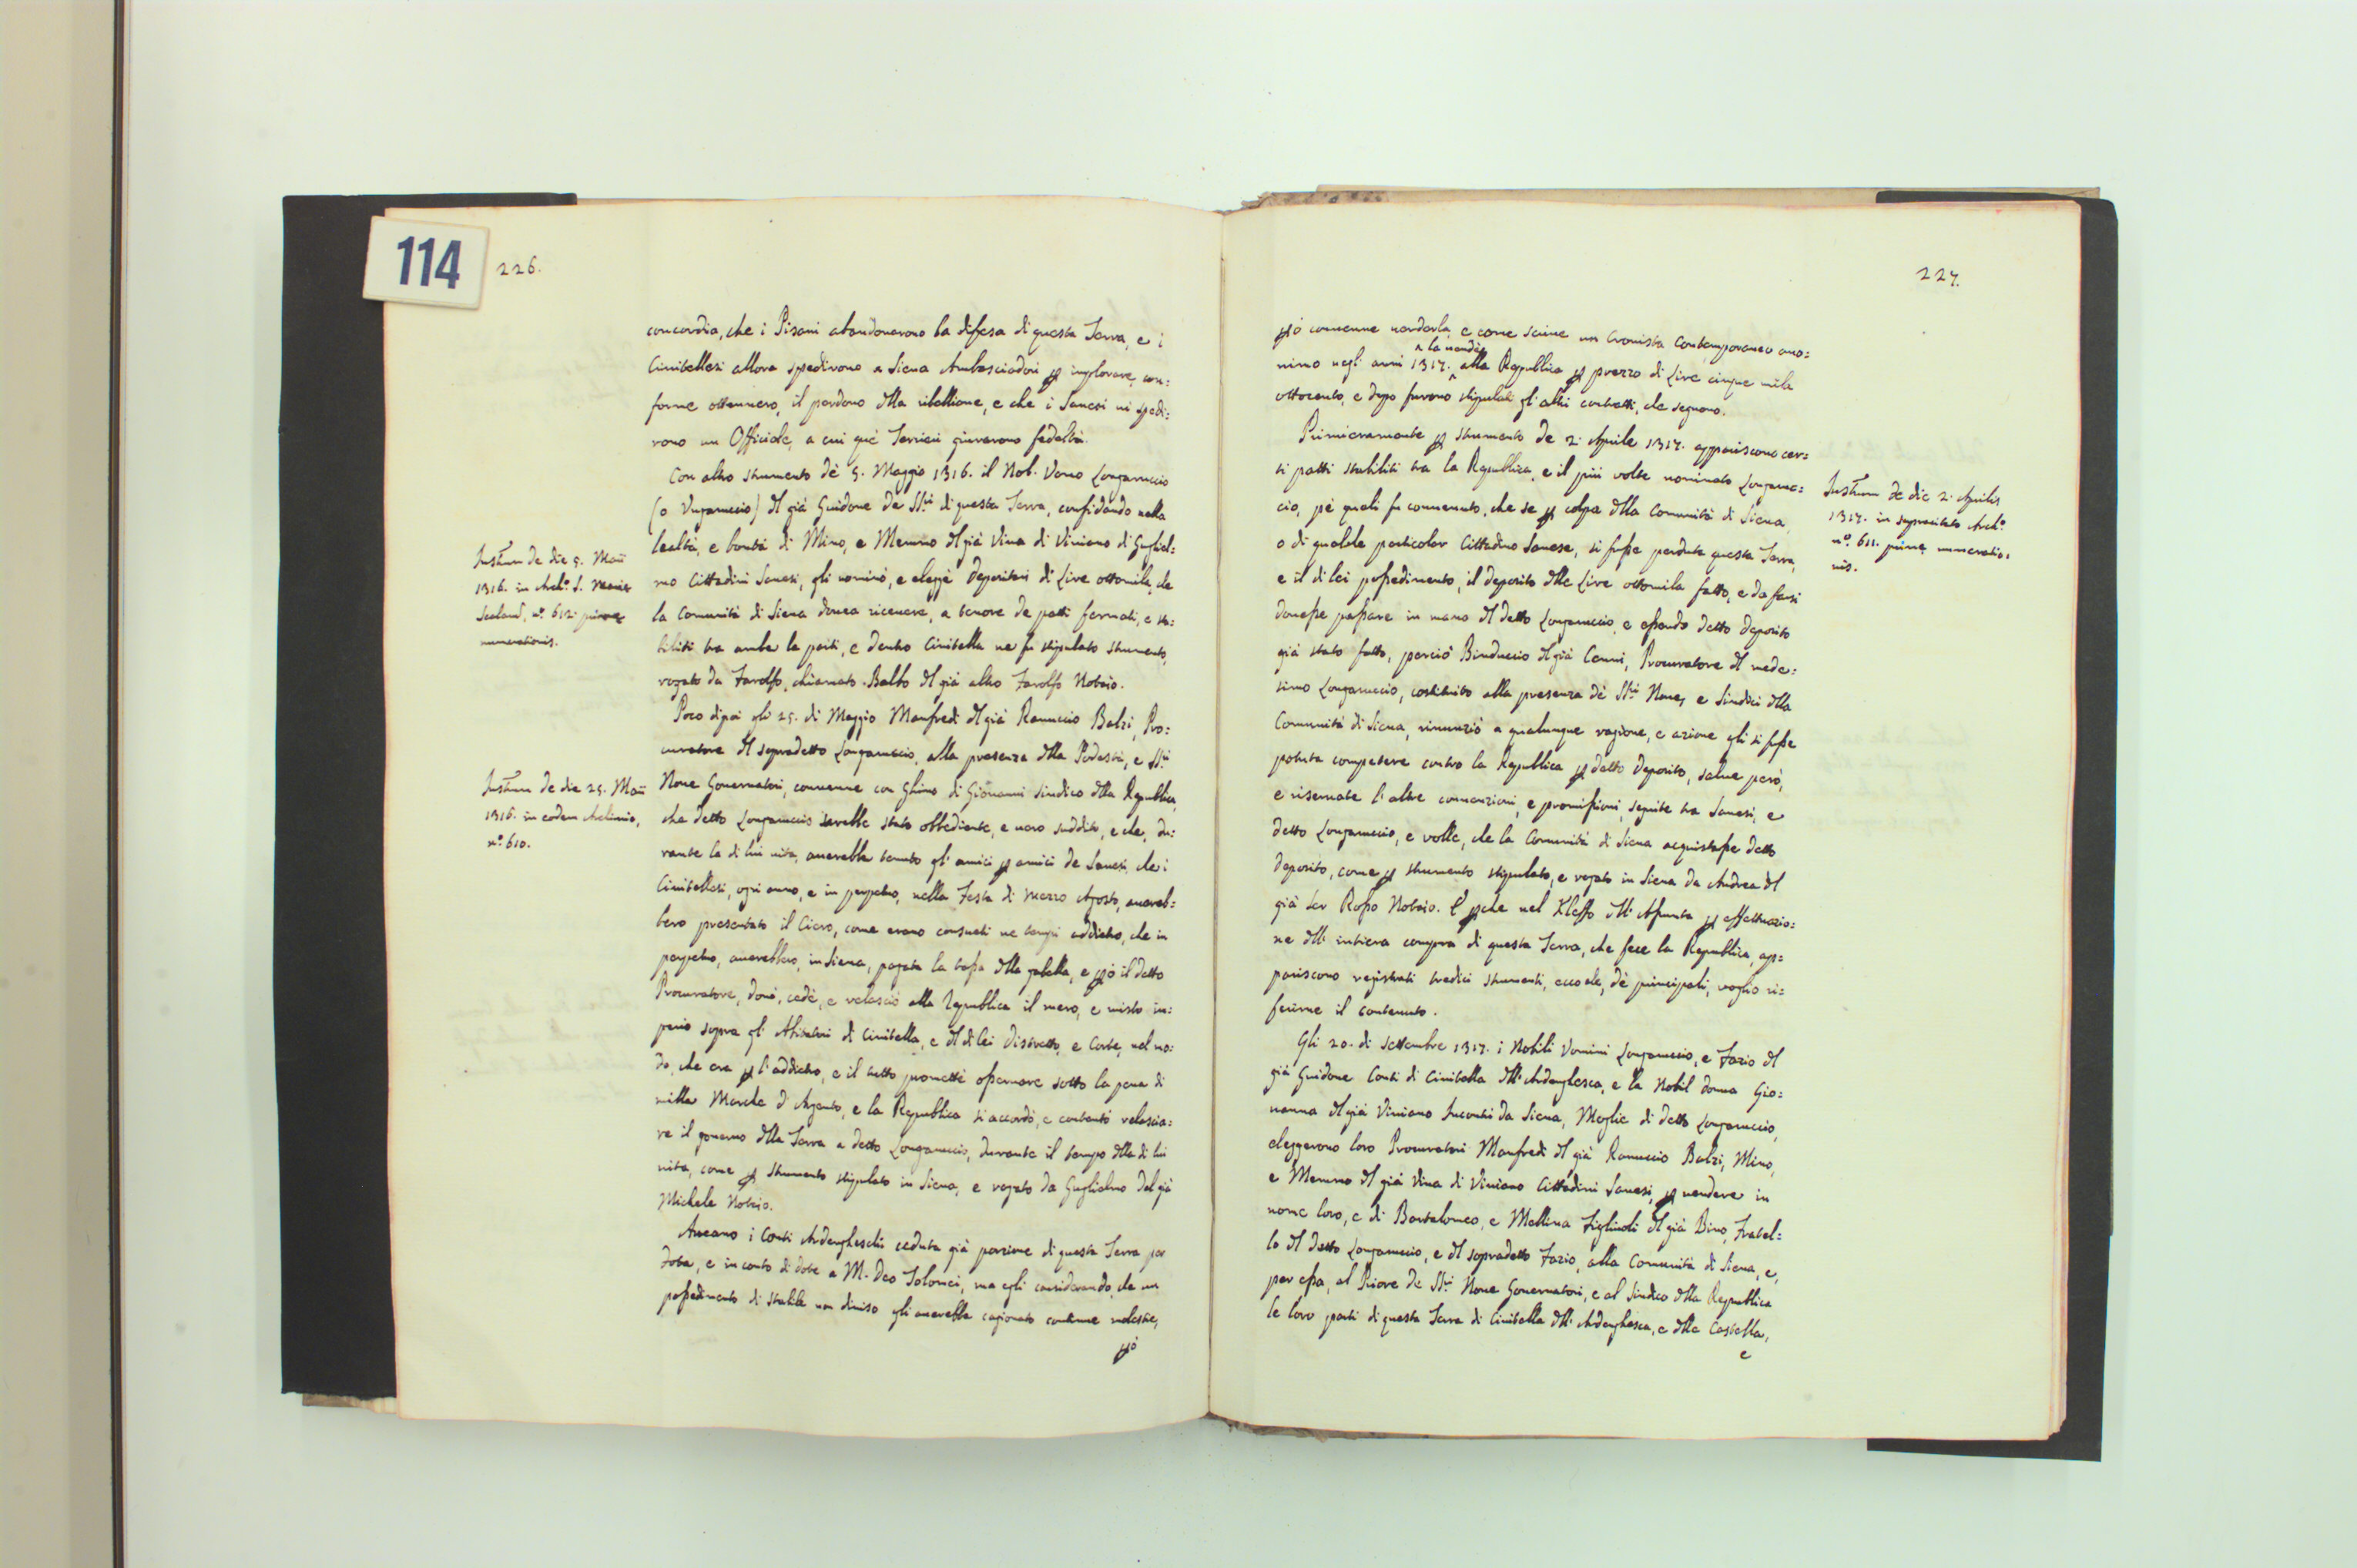 114
226.
concordia, che i Pisani abandonarono la difesa di questa Terra, e i
Civitellesi allora spedirono a Siena Ambasciadori p implorare, con=
forme ottennero, il perdono dlla ribellione, e che i Sanesi vi spedi=
rono un Officiale, a cui que' Terrieri giurarono fedeltà.
Con altro strumento dè 5. Maggio 1316. il Nob. Uomo Longaruccio
(o Ungaruccio) dl già Guidone de SSri di questa Terra, confidando nella
lealtà, e bontà di Mino, e Memmo dl già Vina di Viviano di Gugliel=
mo Cittadini Sanesi, gli nominò, e elegge Depositari di Lire ottomila, che
la Comunità di Siena dovea ricevere, a tenore de patti fermati, e sta=
biliti tra ambe le parti, e dentro Civitella ne fu stipulato strumento,
rogato da Farolfo, chiamato Balbo dl già altro Farolfo Notaio.
Instrum de die 5. Maii
1316. in Archo. S. Mariae
Scalar, no. 612. primae
numerationis.
Poco dipoi gli 25. di Maggio Manfredi dl già Ranuccio Balzi, Pro=
curatore dl sopradetto Longaruccio, alla presenza dlla Podestà, e SSri
Nove Governatori, convenne con Ghino di Giovanni Sindico dlla Republica,
che detto Longaruccio sarebbe stato obbediente, e vero suddito, e che, du=
rante la di lui vita, averebbe tenuto gl' amici p amici de Sanesi, che i
Civitellesi, ogni anno, e in perpetuo, nella Festa di Mezzo Agosto, avereb=
bero presentato il Ciero, come erano consueti ne tempi addietro, che in
perpetuo, averebbero, in Siena, pagata la tassa dlla gabella, e pò il detto
Procuratore, donò, cedè, e relasciò alla Republica il mero, e misto im=
perio sopra gl' Abitatori di Civitella, e dl di lei Distretto, e Corte, nel mo=
do, che era p l'addietro, e il tutto promettè osservare sotto la pena di
mille Marche d'Argento, e la Republica si accordò, e contentò relascia=
re il governo dlla Terra a detto Longaruccio, durante il tempo dlla di lui
vita, come p strumento stipulato in Siena, e rogato da Guglielmo del già
Michele Notaio.
Instrum de die 25. Maii
1316. in eodem Archivio,
no. 610.
Aveano i Conti Ardengheschi ceduta già porzione di questa Terra per
dote, e in conto di dote a M. Deo Tolomei, ma egli considerando, che un
possedimento di stabile non diviso gli averebbe cagionato continue molestie,
pò
227.
pò convenne venderla, e come scrive un Cronista Contemporaneo ano=
nimo negli anni 1317. ^ la vendè alla Republica p prezzo di Lire cinque mila
ottocento, e dopo furono stipulati gl' altri contratti, che seguono.
Primieramente p strumento de 2. Aprile 1317. appariscono cer=
ti patti stabiliti tra la Republica, e il più volte nominato Longaruc=
cio, pe quali fu convenuto, che se p colpa dlla Comunità di Siena,
o di qualche particolar Cittadino Sanese, si fusse perduta questa Terra,
e il di lei possedimento, il deposito dlle Lire ottomila fatto, e da farsi
dovesse passare in mano dl detto Longaruccio, e essendo detto deposito
già stato fatto, perciò Binduccio dl già Cenni, Procuratore dl mede=
simo Longaruccio, costituito alla presenza dè SSri Nove, e Sindici dlla
Comunità di Siena, rinunziò a qualunque ragione, e azione gli si fusse
potuta competere contro la Republica p detto Deposito, salve però,
e riservate l'altre convenzioni, e promissioni, seguite tra Sanesi, e
detto Longaruccio, e volle, che la Comunità di Siena acquistasse detto
deposito, come p strumento stipulato, e rogato in Siena da Andrea dl
già Ser Rosso Notaio. E pche nel Kleffo dll' Assunta p effettuazio=
ne dll' intiera compra di questa Terra, che fece la Republica, ap=
pariscono registrati tredici strumenti, ecco che, de principali, voglio ri=
ferirne il contenuto.
Instrum de die 2. Aprilis
1317. in supracitato Archo.
no. 611. primae numeratio=
nis.
Gli 20. di Settembre 1317. i Nobili Uomini Longaruccio, e Fazio dl
già Guidone Conti di Civitella dll' Ardenghesca, e la Nobil donna Gio=
vanna dl già Viviano Incontri da Siena, Moglie di detto Longaruccio,
eleggerono loro Procuratori Manfredi dl già Ranuccio Balzi, Mino,
e Memmo dl già Vina di Viviano Cittadini Sanesi, p vendere in
nome loro, e di Bartolomeo, e Mellina Figliuoli dl già Bino, Fratel=
lo dl detto Longaruccio, e dl sopradetto Fazio, alla Comunità di Siena, e,
per essa, al Priore de SSri Nove Governatori, e al Sindico dlla Republica
le loro parti di questa Terra di Civitella dll' Ardenghesca, e dlle Castella,
e